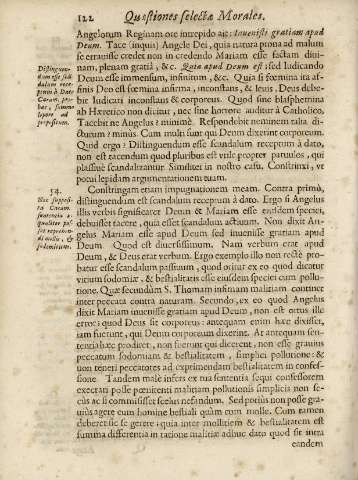 122 Quæstiones selectæ Morales.
Angelorum Reginam ore intrepido ait: Inuenisti gratiam apud
Deum. Tace (inquis) Angele Dei, quia natura prona ad malum
se errauisse credet non in credendo Mariam esse factam diui-
nam, plenam gratiâ, &c. Quia apud Deum est; sed Iudicando
Deum esse immensum, infinitum, &c. Quia si fœmina ita af-
finis Deo est fœmina infirma, inconstans, & leuis, Deus debe-
bit Iudicari inconstans & corporeus. Quod sine blasphemia
ab Hæretico non dicitur, nec sine horrore auditur à Catholico.
Tacebit ne Angelus? minimè. Respondebit neminem talia di-
cturum? minùs. Cum multi sint qui Deum dixerint corporeum.
Quid ergo? Distinguendum esse scandalum receptum à dato,
non est tacendum quod pluribus est vtile propter paruulos, qui
plausiuè scandalizantur. Simili in nostro casu. Constrinxi, vt
potui lepidam argumentationem tuam.
Distinguen-
dum esse scã-
dalum rece-
ptum à Dato
Caram. pro-
bat, summo
lepore ad
propositum.
Constringam etiam impugnationem meam. Contra primò,
distinguendum est scandalum receptum à dato. Ergo si Angelus
illis verbis significaret Deum & Mariam esse eiusdem speciei,
debuisset tacere, quia esset scandalum actiuum. Non dixit An-
gelus Mariam esse apud Deum sed inuenisse gratiam apud
Deum. Quod est diuersissimum. Nam verbum erat apud
Deum, & Deus erat verbum. Ergo exemplo illo non rectè pro-
batur esse scandalum passiuum, quod oritur ex eo quod dicatur
vitium sodomiæ, & bestialitatis esse eiusdem speciei cum pollu-
tione. Quæ secundùm S. Thomam infimam malitiam continet
inter peccata contra naturam. Secundo, ex eo quod Angelus
dixit Mariam inuenisse gratiam apud Deum, non est ortus ille
error; quod Deus sit corporeus: antequam enim hæc dixisset,
iam fuerunt, qui Deum corporeum dixerint. At antequam sen-
tentia hæc prodiret, non fuerunt qui dicerent, non esse grauius
peccatum sodomiam & bestialitatem, simplici pollutione: &
non teneri peccatores ad exprimendam bestialitatem in confes-
sione. Tandem malè infers ex tua sententia sequi confessorem
execrari posse pœnitenti malitiam pollutionis simplicis non se-
cùs ac si commisisset scelus nefandum. Sed potiùs non posse gra-
uiùs agere cum homine bestiali quàm cum molle. Cum tamen
deberet sic se gerere; quia inter mollitiem & bestialitatem est
summa differentia in ratione malitiæ adhuc dato quod sit intra
54.
eandem